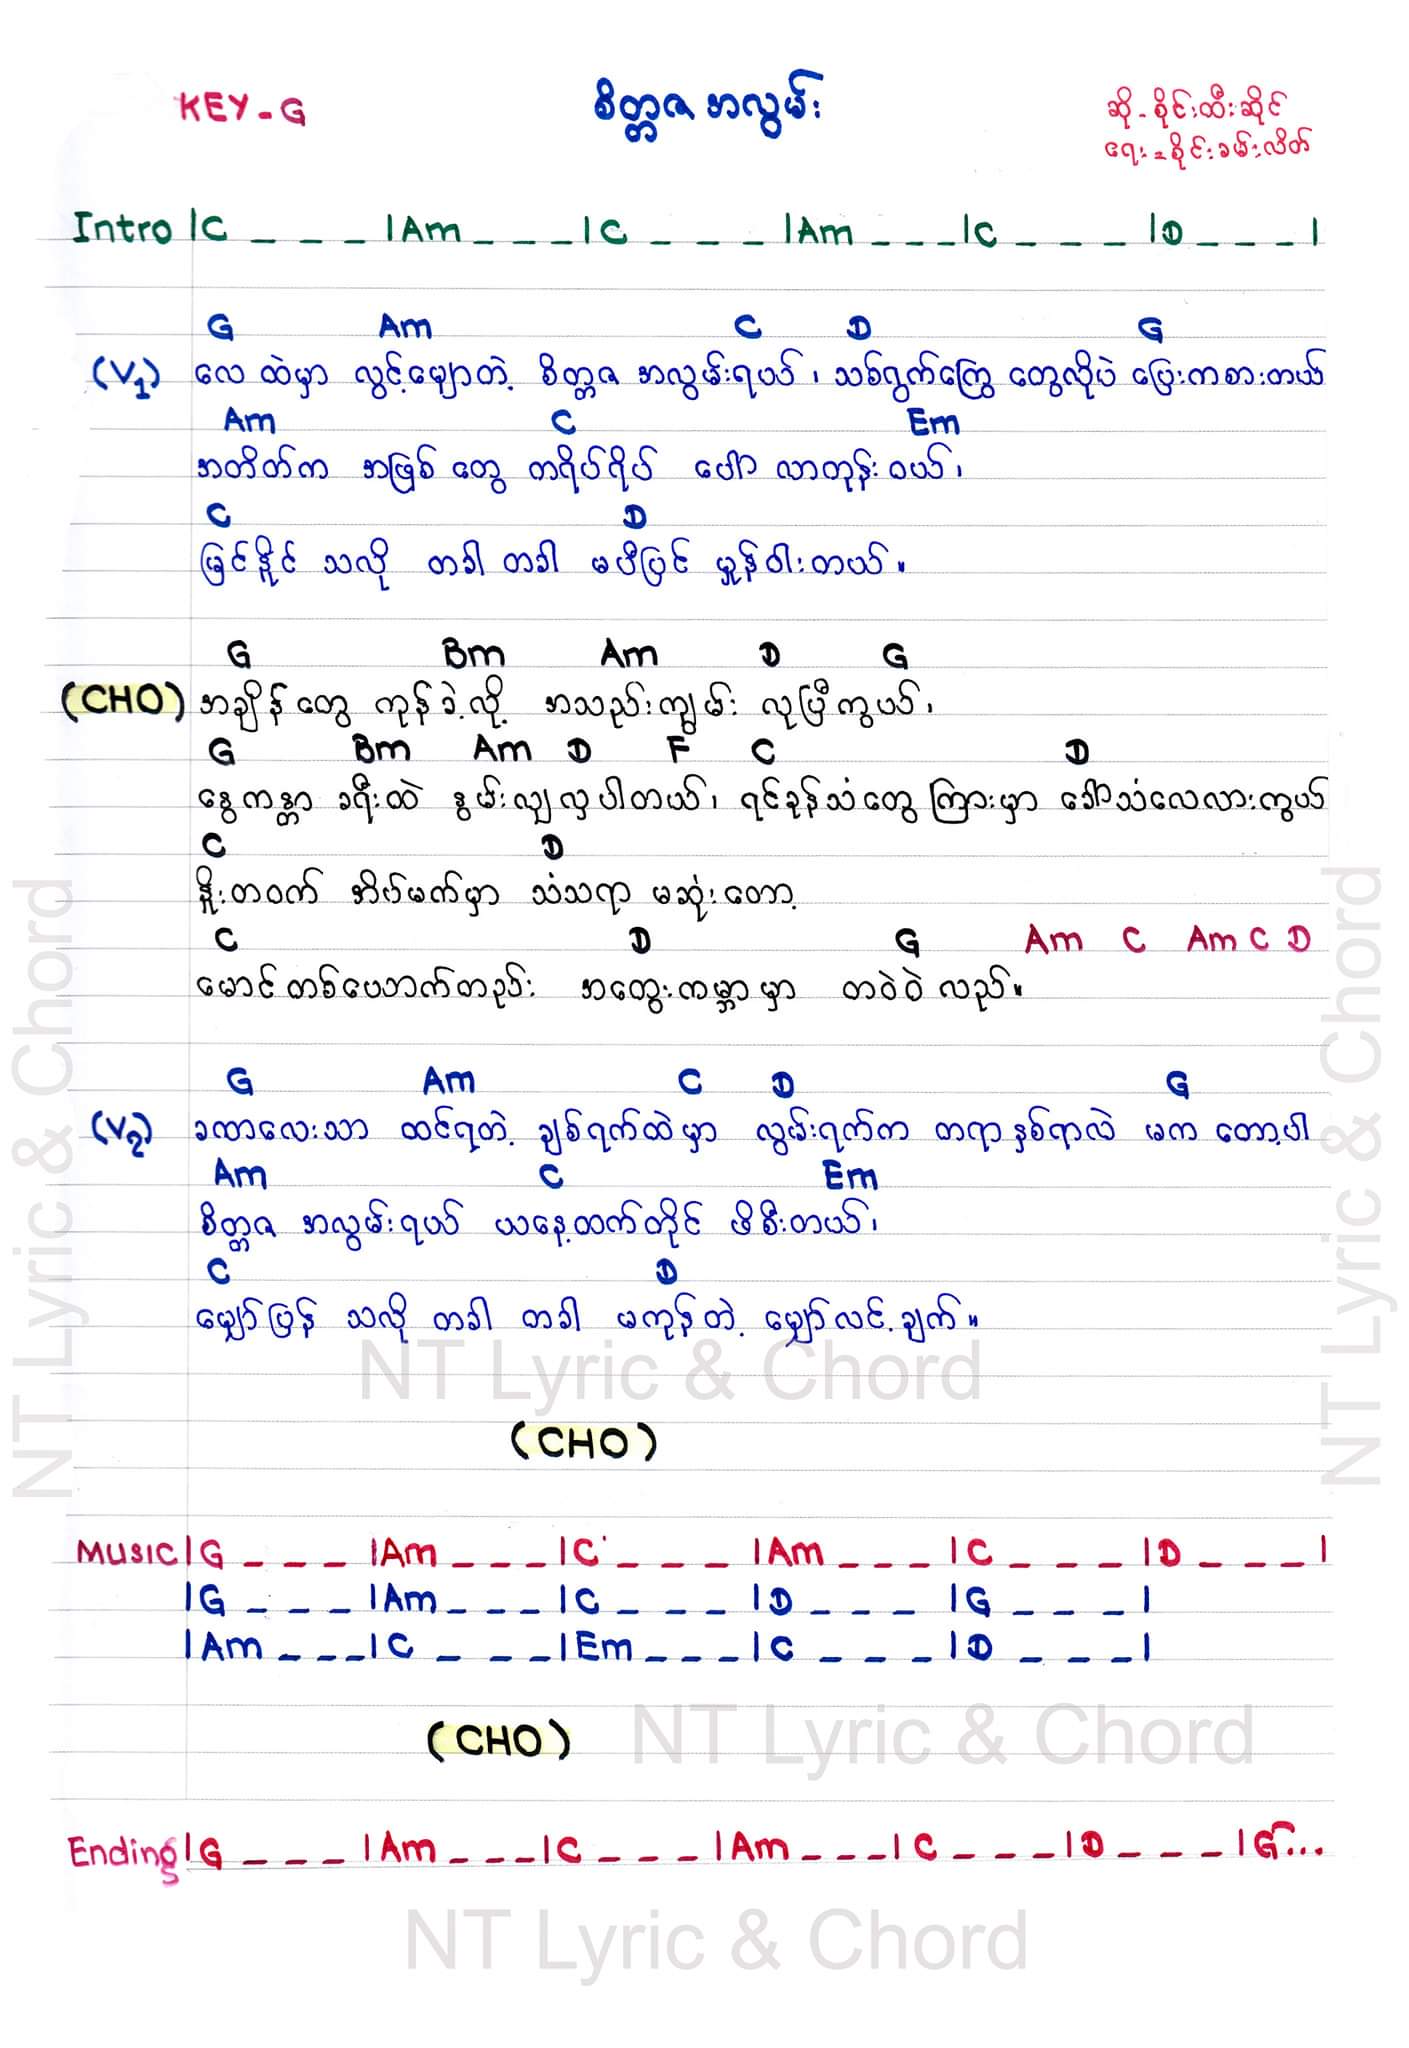 KEY - G
စိတ္တဇ အလွမ်း
ဆို - စိုင်းထီးဆိုင်
ရေး = စိုင်းခမ်းလိတ်
Intro |C _ _ _ |Am _ _ _ |C _ _ _ |Am _ _ _ |C _ _ _ |D _ _ _ |
G Am C D G
(V1) လေ ထဲမှာ လွင့်မျောတဲ့ စိတ္တဇ အလွမ်းရယ်၊ သစ်ရွက်ကြွေ တွေလိုပဲ ပြေးကစားတယ်
Am C Em
အတိတ်က အဖြစ် တွေ ကရိပ်ရိပ် ပေါ် လာတုန်း ဝယ်၊
C D
မြင်နိုင် သလို တခါ တခါ မပီပြင် မှုန်ဝါးတယ်။
G Bm Am D G
(CHO) အချိန် တွေ ကုန်ခဲ့လို့ အသည်းကျွမ်း လုပြီကွယ်၊
G Bm Am D F C D
နွေကန္တာ ခရီးထဲ နွမ်းလျှလှပါတယ်၊ ရင်ခုန်သံတွေ ကြားမှာ ခေါ်သံလေလားကွယ်
C D
နိုးတဝက် အိပ်မက်မှာ သံသရာ မဆုံးတော့
C D G Am C Am C D
မောင်တစ်ယောက်တည်း အတွေးကမ္ဘာမှာ တဝဲဝဲ လည်။
G Am C D G
(V2) ခဏလေးသာ ထင်ရတဲ့ ချစ်ရက်ထဲမှာ လွမ်းရက်က တရာနှစ်ရာလဲ မက တော့ပါ
Am C Em
စိတ္တဇ အလွမ်းရယ် ယနေ့ထက်တိုင် ဖိစီးတယ်၊
C D
မျှော်ပြန် သလို တခါ တခါ မကုန်တဲ့ မျှော်လင့်ချက်။
(CHO)
MUSIC |G _ _ _ |Am _ _ _ |C _ _ _ |Am _ _ _ |C _ _ _ |D _ _ _ |
|G _ _ _ |Am _ _ _ |C _ _ _ |D _ _ _ |G _ _ _ |
|Am _ _ _ |C _ _ _ |Em _ _ _ |C _ _ _ |D _ _ _ |
(CHO)
Ending |G _ _ _ |Am _ _ _ |C _ _ _ |Am _ _ _ |C _ _ _ |D _ _ _ |G...
NT Lyric & Chord
NT Lyric & Chord
NT Lyric & Chord
NT Lyric & Chord
NT Lyric & Chord